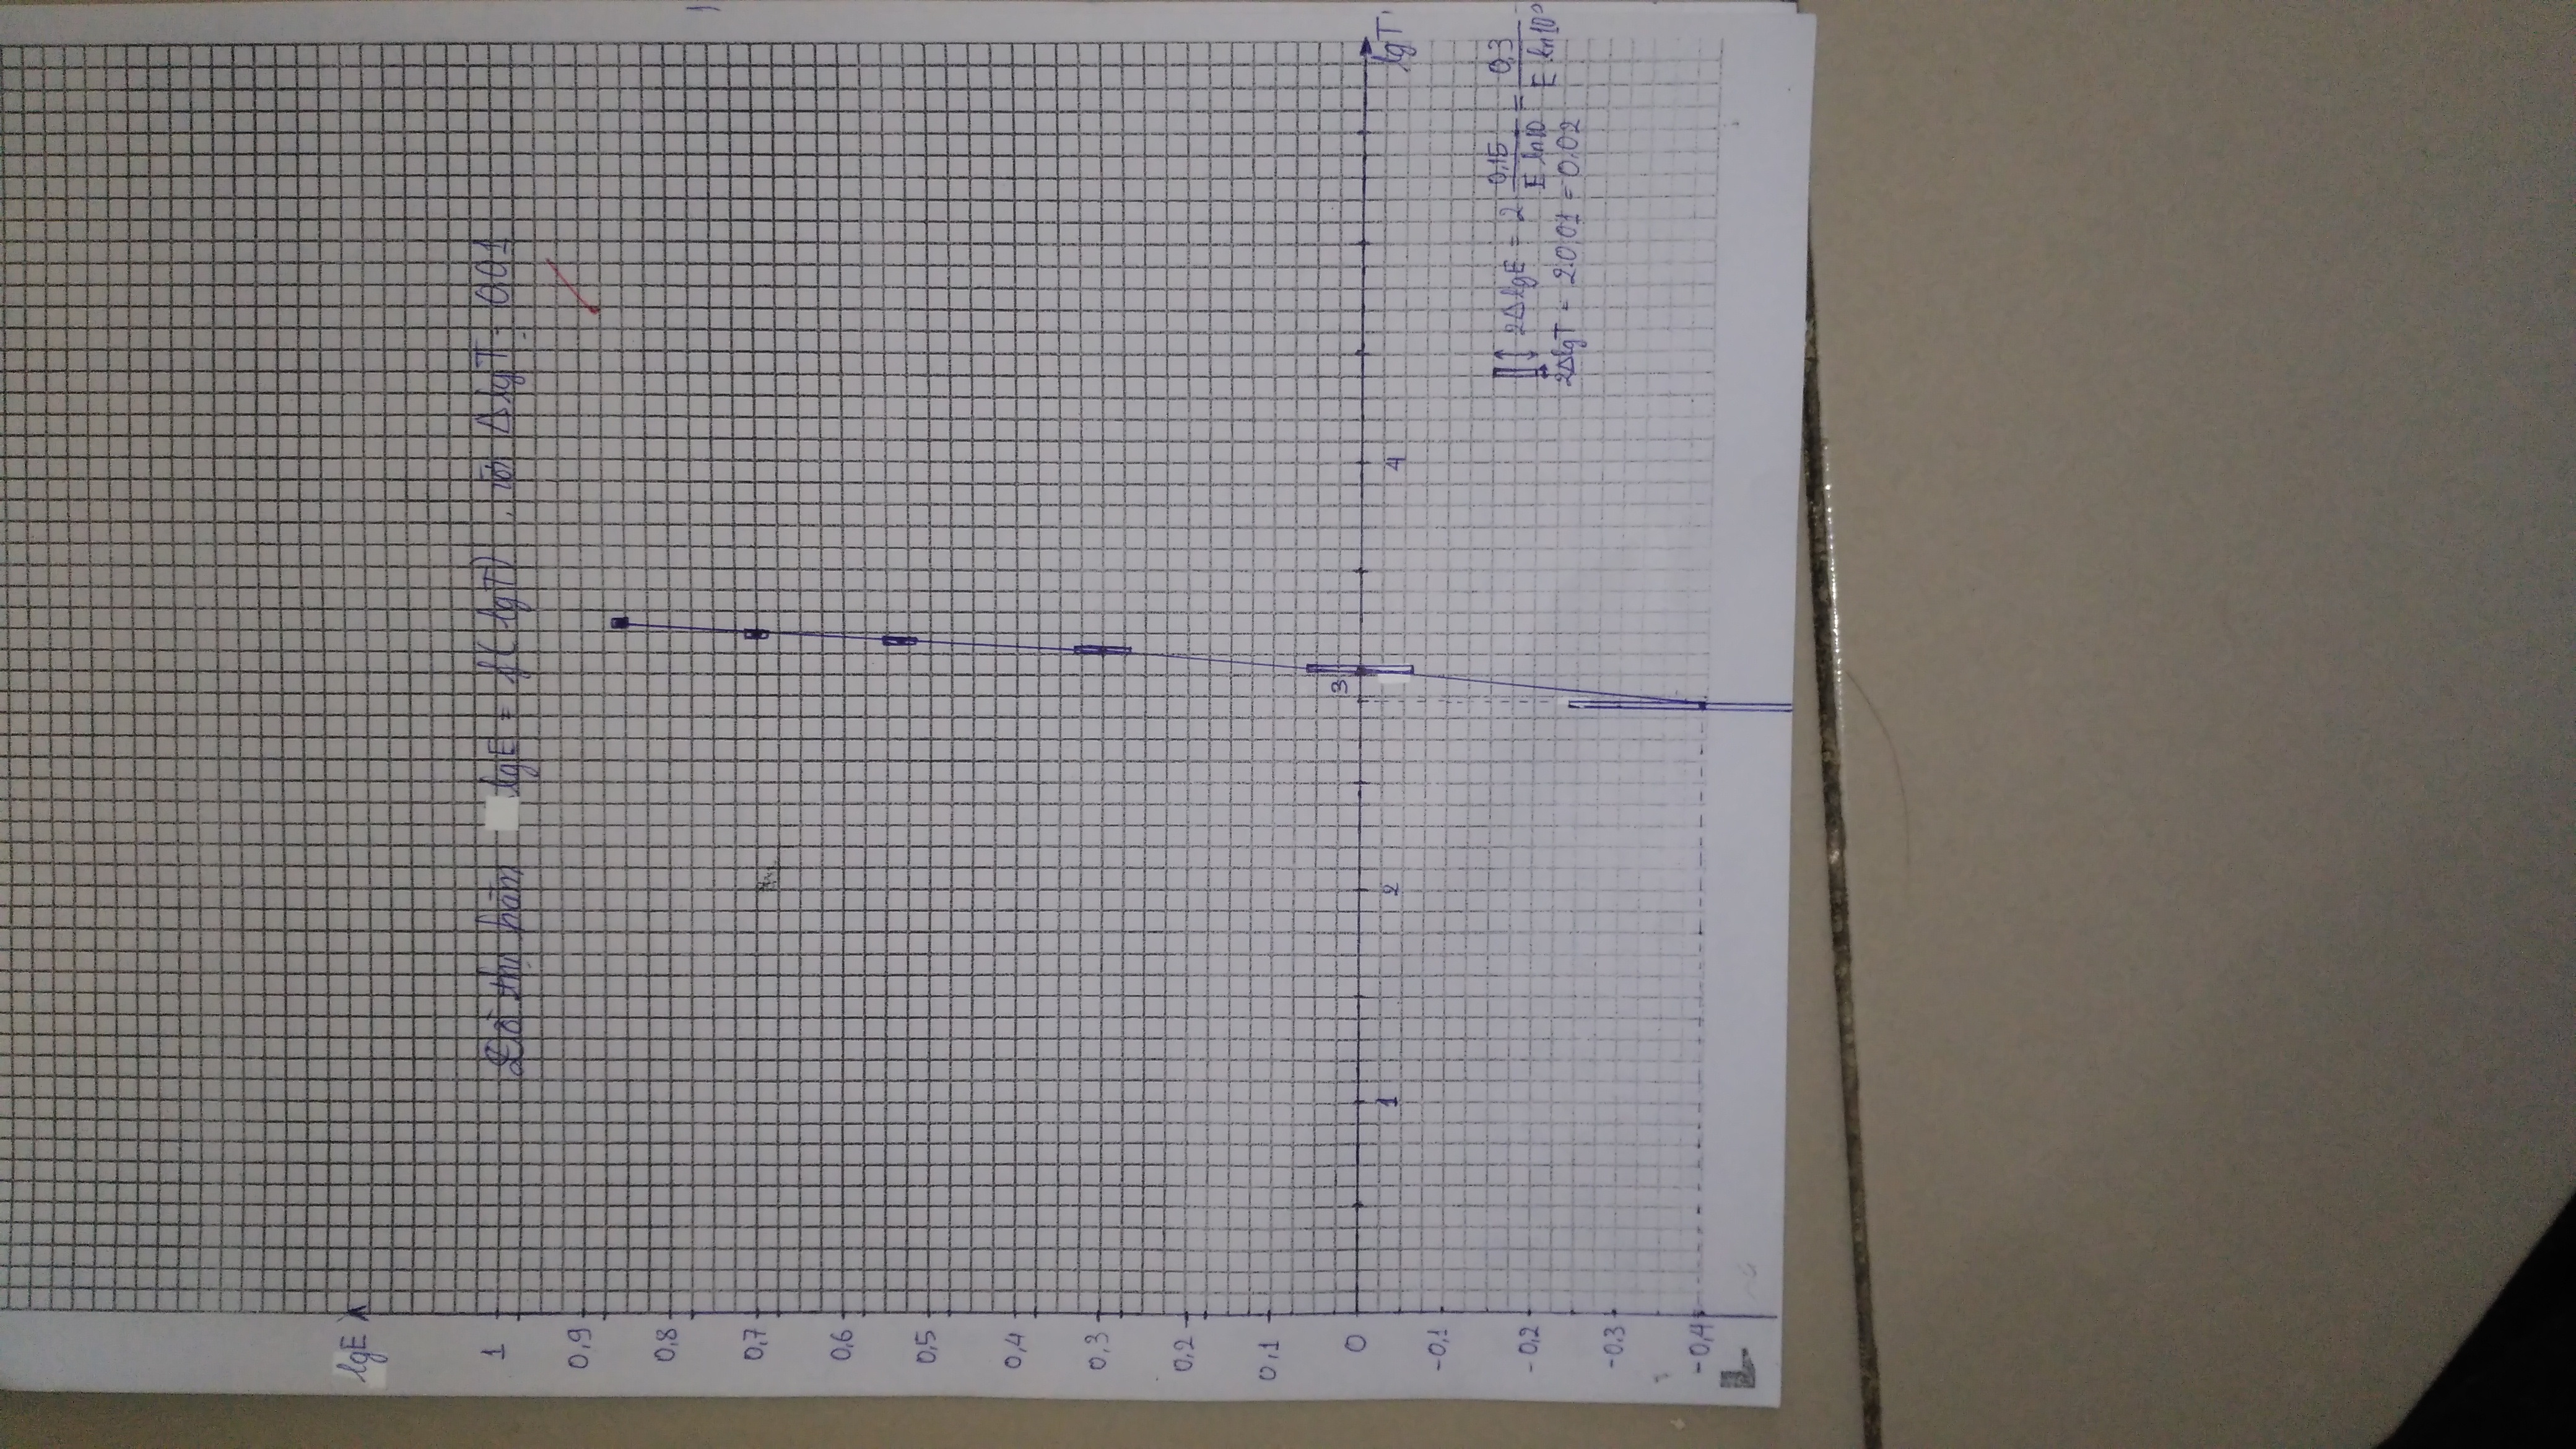 lgE
1
Đồ thị hàm lgE = f(lgT), với ΔlgT = 0,01
0,9
0,8
0,7
0,6
0,5
0,4
0,3
0,2
0,1
3
0
1 2 4 lgT
-0,1
-0,2
2ΔlgE = 2 0,15/E ln10 = 0,3/E ln10
2ΔlgT = 2.0,01 = 0,02
-0,3
-0,4